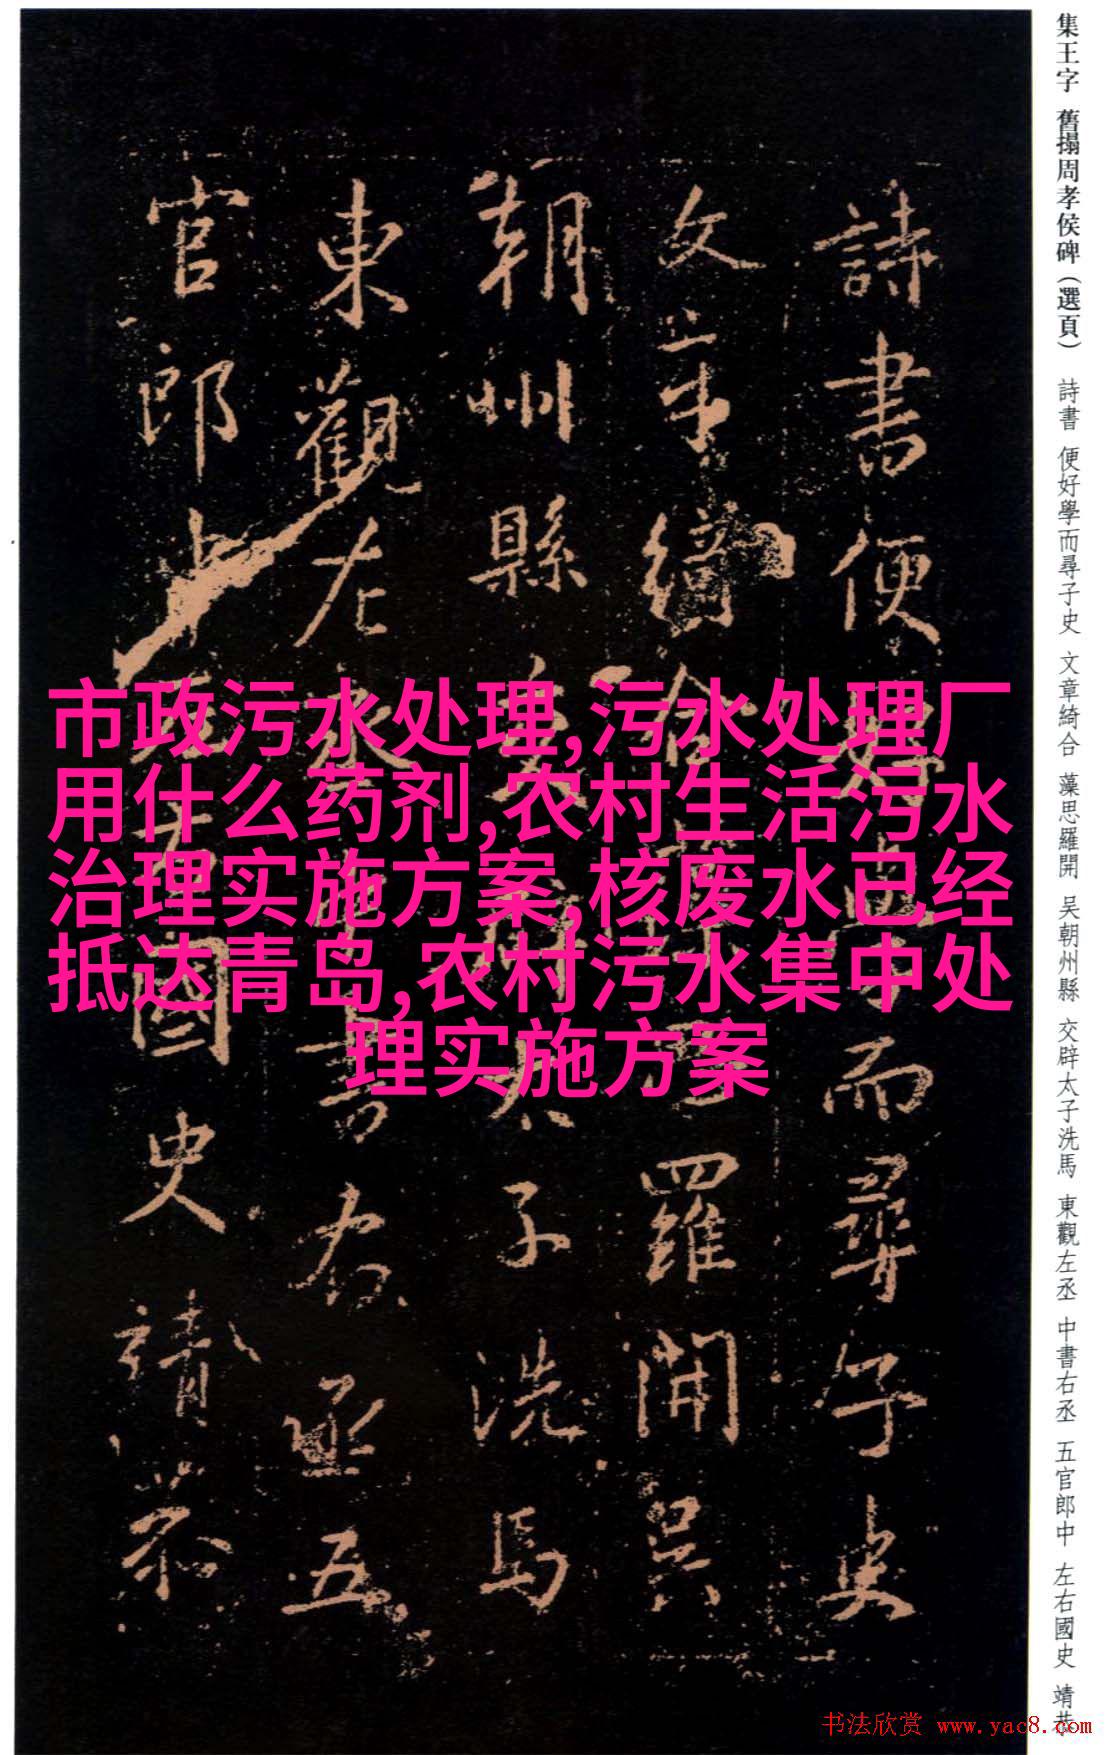 集王字 舊搨周孝侯碑（選頁） 詩書 便好學而尋子史 文章綺合 藻思羅開 吴朝州縣 交辟太子洗馬 東觀左丞 中書右丞 五官郎中 左右國史 靖恭
詩書便好學而尋子史
文章綺合藻思羅開吴
朝州縣交辟太子洗馬
東觀左丞中書右丞五
官郎中左右國史靖恭
市政污水处理,污水处理厂
用什么药剂,农村生活污水
治理实施方案,核废水已经
抵达青岛,农村污水集中处
理实施方案
书法欣赏 www.yac8.com